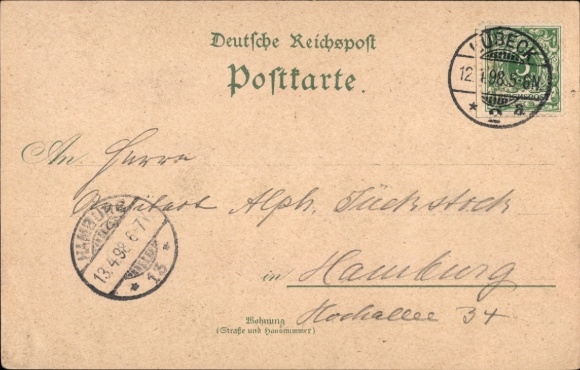 Deutsche Reichspost
Postkarte.
LÜBECK
12.4.98.5-6N.
* 2 a
5
An Herrn
Alph. Tückstock
HAMBURG
13.4.98.6-7
* 13 *
in Hamburg
Hochallee 34
Wohnung
(Straße und Hausnummer)